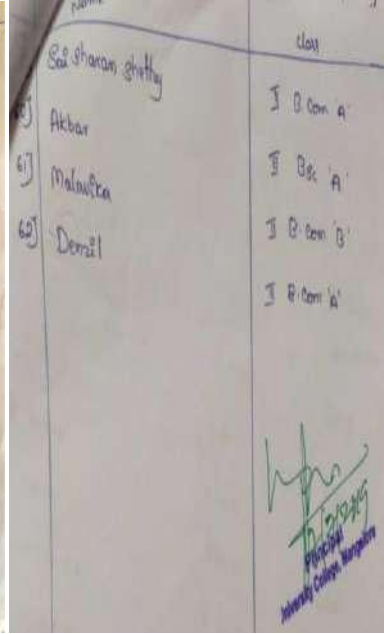 Name
Class
Sai sharan shetty I B.Com 'A'
60] Akbar II BSc 'A'
61] Malavika I B.Com 'B'
62] Denzil I B.Com 'A'
Principal
University College, Mangalore